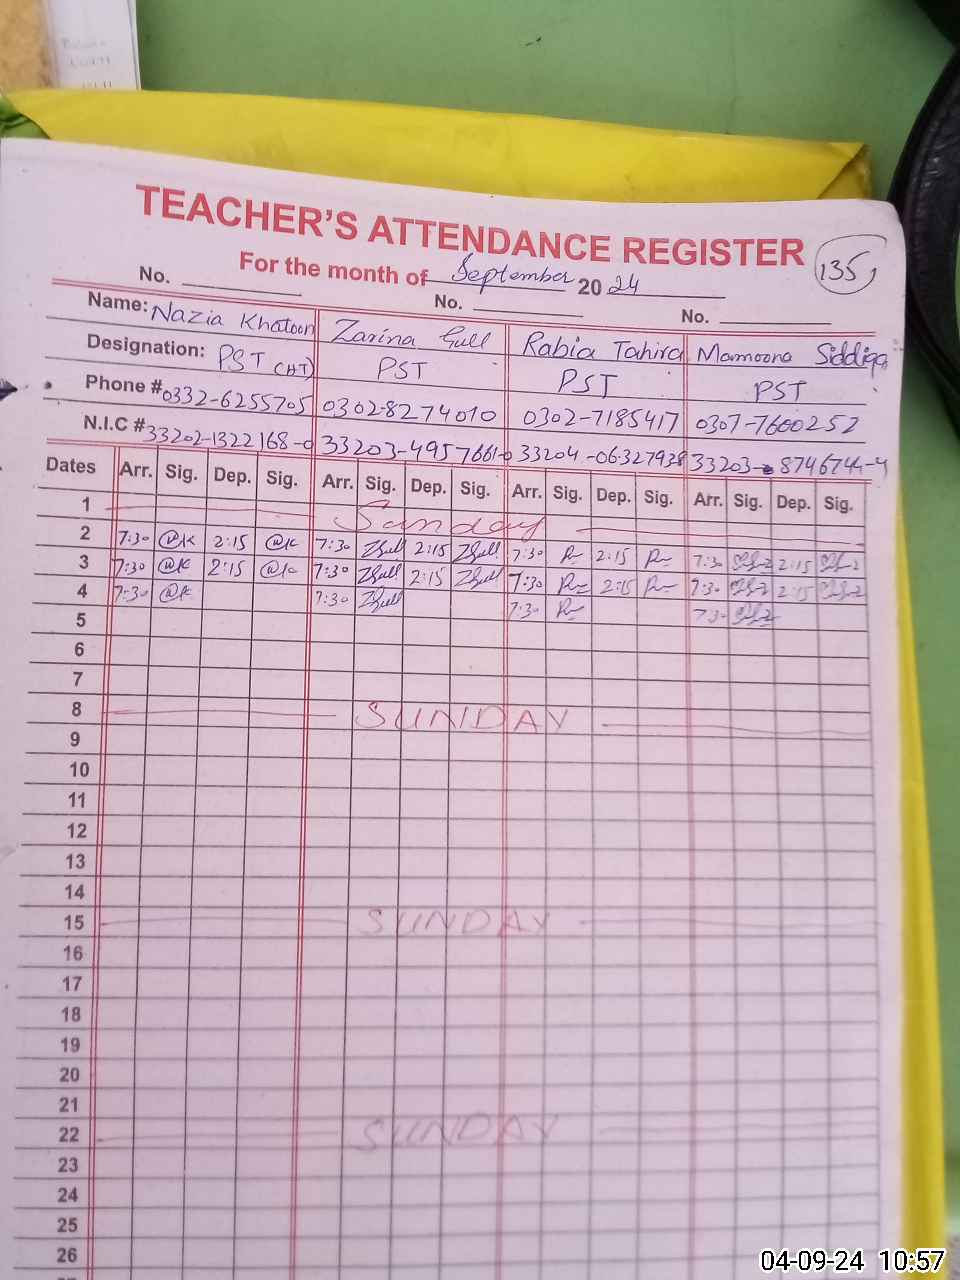 TEACHER'S ATTENDANCE REGISTER
135
For the month of September 2024
No. No. No.
Name: Nazia Khatoon Zarina Gull Rabia Tahira Mamoona Siddiqa
Designation: PST (HT) PST PST PST
Phone # 0332-6255705 0302-8274010 0302-7185417 0307-7600252
N.I.C # 33202-1322168-0 33203-4957661-0 33204-0632793 33203-8746744-4
Dates Arr. Sig. Dep. Sig. Arr. Sig. Dep. Sig. Arr. Sig. Dep. Sig. Arr. Sig. Dep. Sig.
1 Sunday
2 7:30 2:15 7:30 ZGull 2:15 ZGull 7:30 2:15 7:30 2:15
3 7:30 2:15 7:30 ZGull 2:15 ZGull 7:30 2:15 7:30 2:15
4 7:30 7:30 ZGull 7:30 7:30
5
6
7
8 SUNDAY
9
10
11
12
13
14
15 SUNDAY
16
17
18
19
20
21
22 SUNDAY
23
24
25
26
04-09-24 10:57